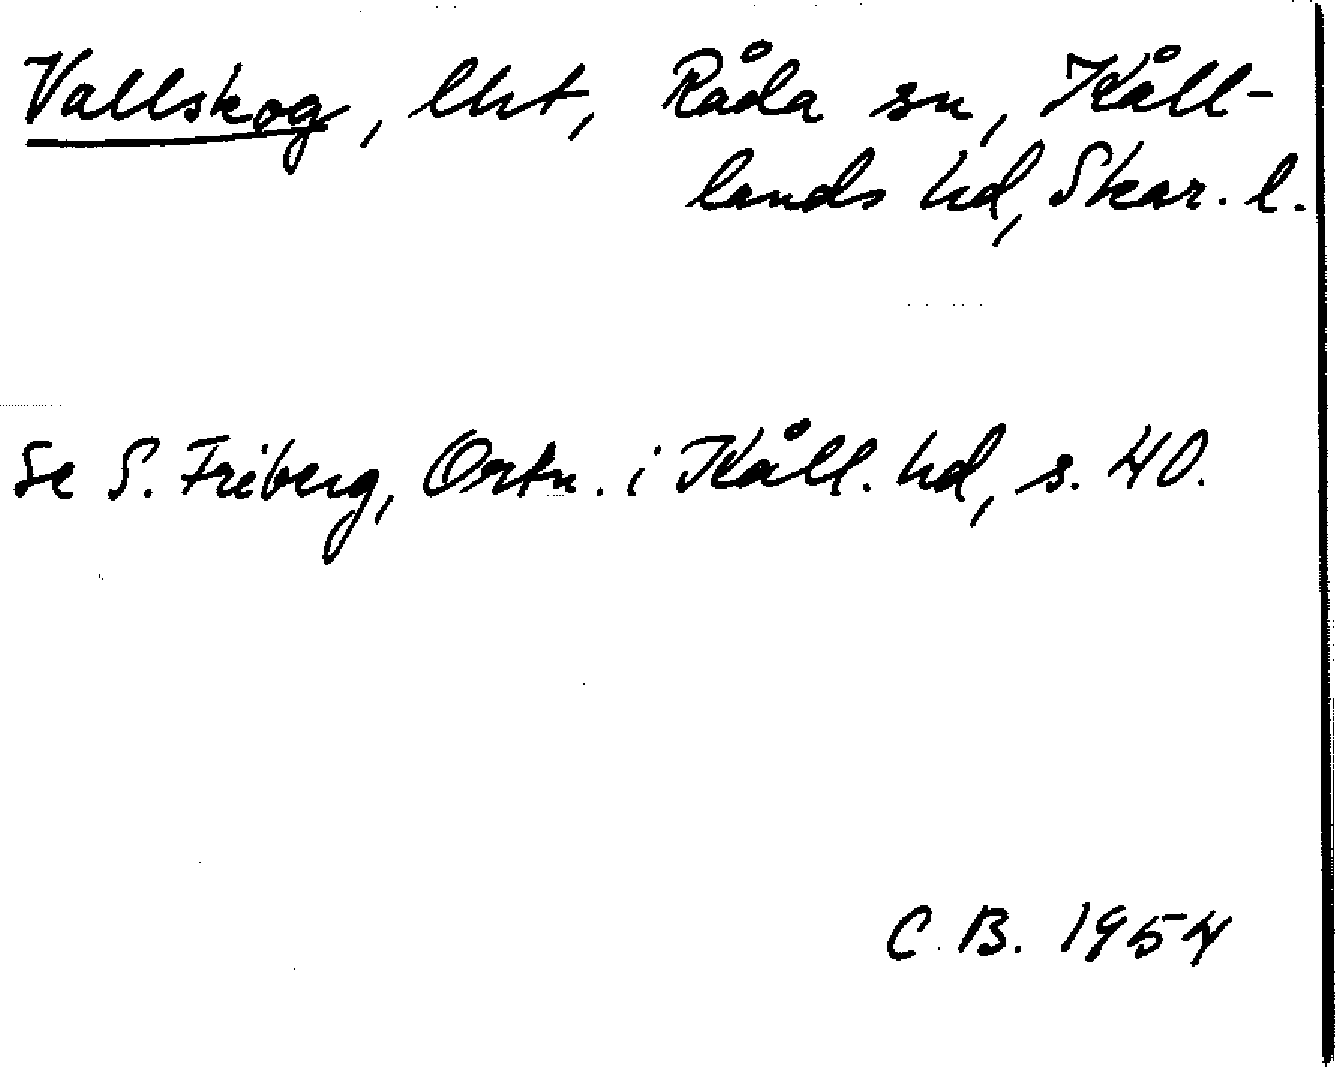 Vallskog, lht, Råda sn, Kåll-
lands hd, Skar. l.
Se S. Friberg, Ortn. i Kåll. hd, s. 40.
C. B. 1954